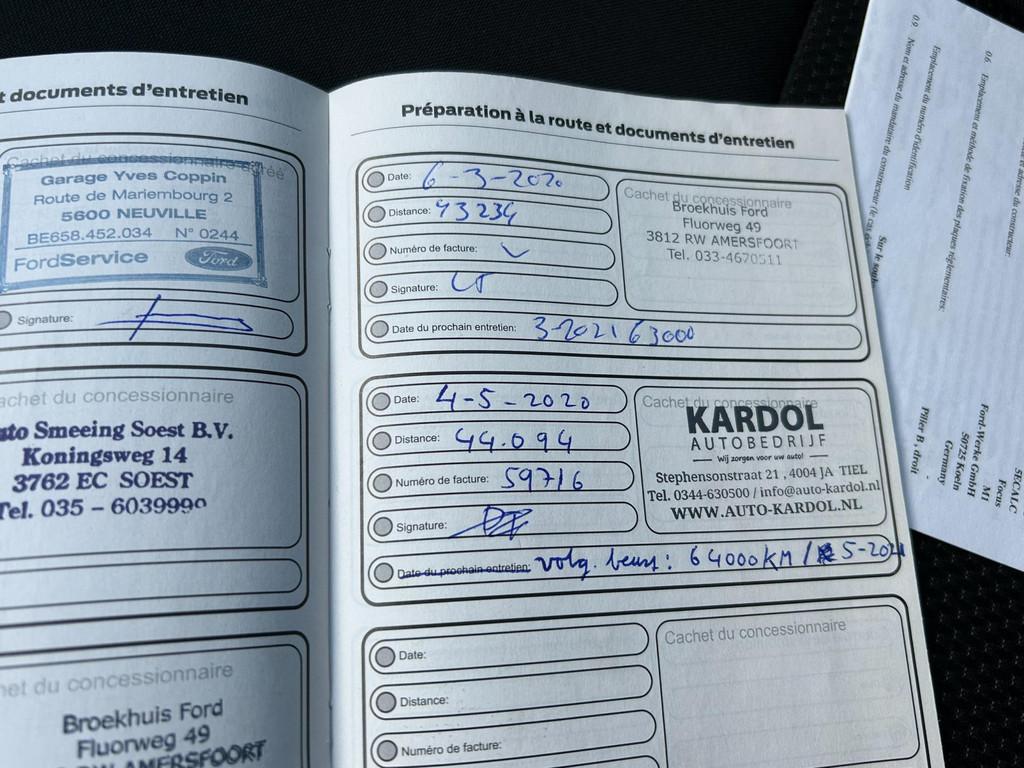 t documents d'entretien
Cachet du concessionnaire agréé
Garage Yves Coppin
Route de Mariembourg 2
5600 NEUVILLE
BE658.452.034 N° 0244
FordService Ford
Signature:
achet du concessionnaire
uto Smeeing Soest B.V.
Koningsweg 14
3762 EC SOEST
Tel. 035 - 6039990
het du concessionnaire
Broekhuis Ford
Fluorweg 49
RW AMERSFOORT
Préparation à la route et documents d'entretien
Date: 6-3-2020
Distance: 43234
Numéro de facture:
Signature:
Date du prochain entretien: 3-2021 63000
Cachet du concessionnaire
Broekhuis Ford
Fluorweg 49
3812 RW AMERSFOORT
Tel. 033-4670511
Date: 4-5-2020
Distance: 44.094
Numéro de facture: 59716
Signature:
Date du prochain entretien: volg. beurt: 64000KM / 5-2021
Cachet du concessionnaire
KARDOL
AUTOBEDRIJF
Wij zorgen voor uw auto!
Stephensonstraat 21, 4004 JA TIEL
Tel. 0344-630500 / info@auto-kardol.nl
WWW.AUTO-KARDOL.NL
Date:
Distance:
Numéro de facture:
Cachet du concessionnaire
et adresse du constructeur
0.6. Emplacement et méthode de fixation des plaques réglementaires:
Emplacement du numéro d'identification
0.9. Nom et adresse du mandataire du constructeur (le cas
Sur le
5ECALC
Focus
M1
Ford-Werke GmbH
50725 Koeln
Germany
Pilier B, droit